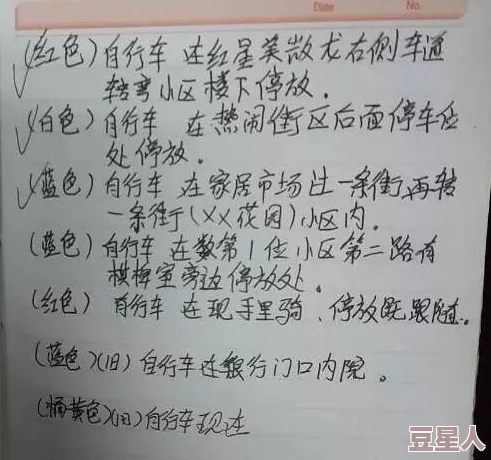 Date No.
(红色)自行车 在红星美散龙右侧车道
转弯小区楼下停放。
(白色)自行车 在热闹街区后面停车位
处停放。
(蓝色)自行车 在家居市场过一条街,再转
一条街(XX花园)小区内。
(蓝色)自行车 在数第1位小区第二路有
棋牌室旁边停放处。
(红色) 自行车 在现手里骑、停放既跟随。
(蓝色)(旧)自行车在银行门口内院。
(橘黄色)(旧)自行车现在
豆星人